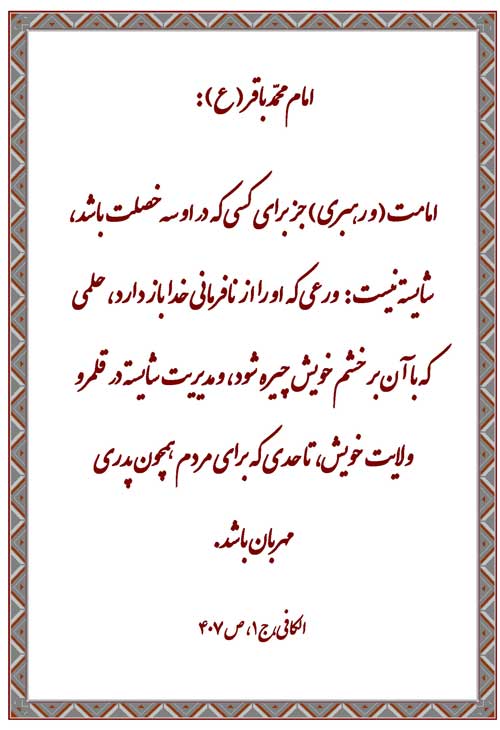 امام محمّد باقر (ع):
امامت (و رهبری) جز برای کسی که در او سه خصلت باشد،
شایسته نیست: ورعی که او را از نافرمانی خدا باز دارد، حلمی
که با آن بر خشم خویش چیره شود، و مدیریت شایسته در قلمرو
ولایت خویش، تا حدی که برای مردم همچون پدری
مهربان باشد.
الکافی، ج ۱، ص ۴۰۷